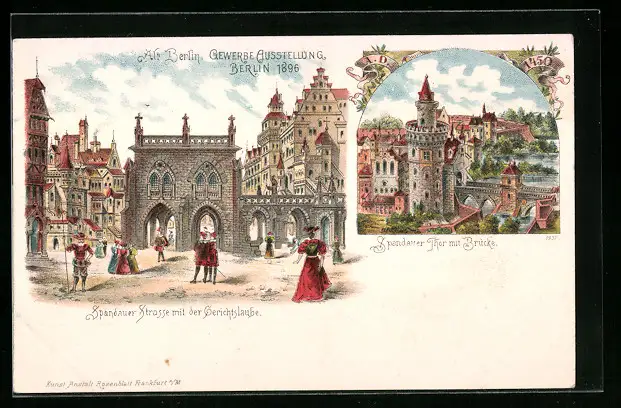 Alt Berlin. GEWERBE AUSSTELLUNG,
BERLIN 1896
A.D. 1450
Spandauer Thor mit Brücke.
Spandauer Strasse mit der Gerichtslaube.
Kunst Anstalt Rosenblatt Frankfurt a/M.